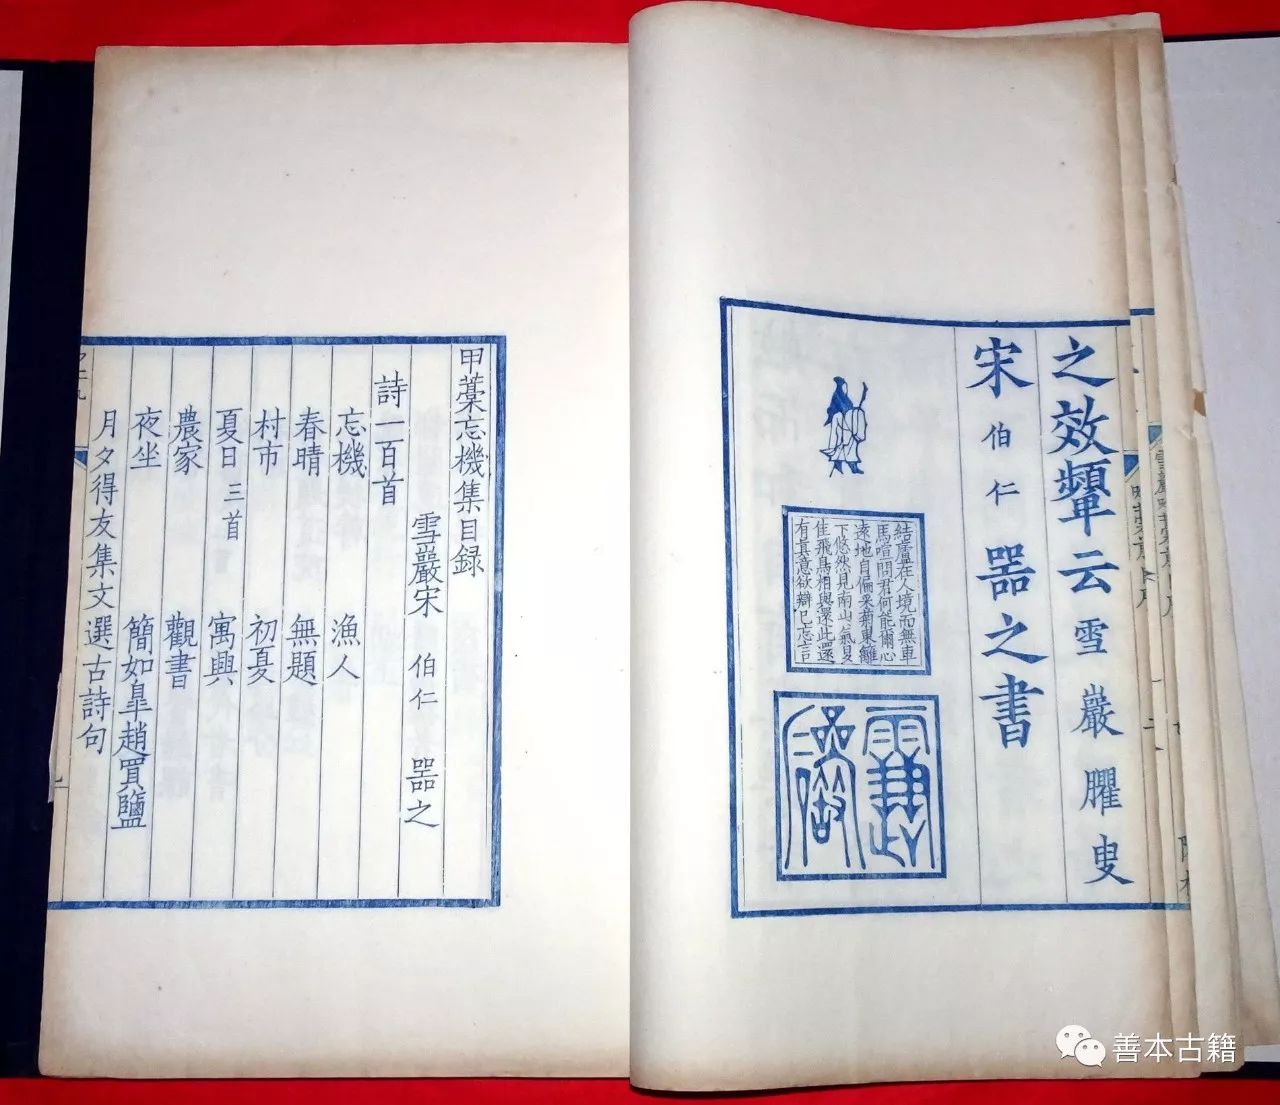 之效顰云雪巖臞叟
宋伯仁器之書
結廬在人境而無車
馬喧問君何能爾心
遠地自偏采菊東籬
下悠然見南山山氣日夕
佳飛鳥相與還此還
有真意欲辯已忘言
甲藁忘機集目録
雪巖宋伯仁器之
詩一百首
忘機 漁人
春晴 無題
村市 初夏
夏日三首 寓興
農家 觀書
夜坐 簡如皐趙買鹽
月夕得友集文選古詩句
善本古籍